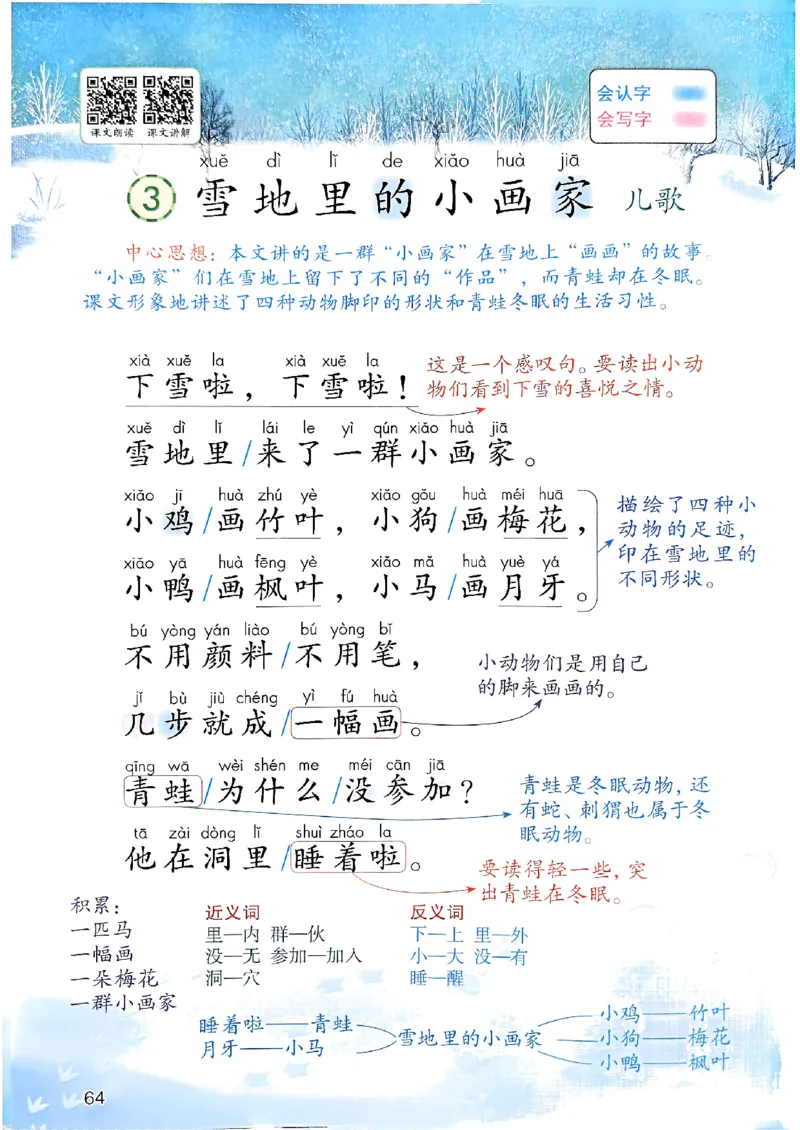 课文朗读 课文讲解
会认字
会写字
xuě dì lǐ de xiǎo huà jiā
3 雪地里的小画家 儿歌
中心思想：本文讲的是一群“小画家”在雪地上“画画”的故事。
“小画家”们在雪地上留下了不同的“作品”，而青蛙却在冬眠。
课文形象地讲述了四种动物脚印的形状和青蛙冬眠的生活习性。
xià xuě la xià xuě la
下雪啦，下雪啦！
这是一个感叹句。要读出小动
物们看到下雪的喜悦之情。
xuě dì lǐ lái le yì qún xiǎo huà jiā
雪地里/来了一群小画家。
xiǎo jī huà zhú yè xiǎo gǒu huà méi huā
小鸡/画竹叶，小狗/画梅花，
xiǎo yā huà fēng yè xiǎo mǎ huà yuè yá
小鸭/画枫叶，小马/画月牙。
描绘了四种小
动物的足迹，
印在雪地里的
不同形状。
bú yòng yán liào bú yòng bǐ
不用颜料/不用笔，
jǐ bù jiù chéng yì fú huà
几步就成/一幅画。
小动物们是用自己
的脚来画画的。
qīng wā wèi shén me méi cān jiā
青蛙/为什么/没参加？
青蛙是冬眠动物，还
有蛇、刺猬也属于冬
眠动物。
tā zài dòng lǐ shuì zháo la
他在洞里/睡着啦。
要读得轻一些，突
出青蛙在冬眠。
积累：
一匹马
一幅画
一朵梅花
一群小画家
近义词
里—内 群—伙
没—无 参加—加入
洞—穴
反义词
下—上 里—外
小—大 没—有
睡—醒
睡着啦——青蛙
月牙——小马
雪地里的小画家
小鸡——竹叶
小狗——梅花
小鸭——枫叶
64